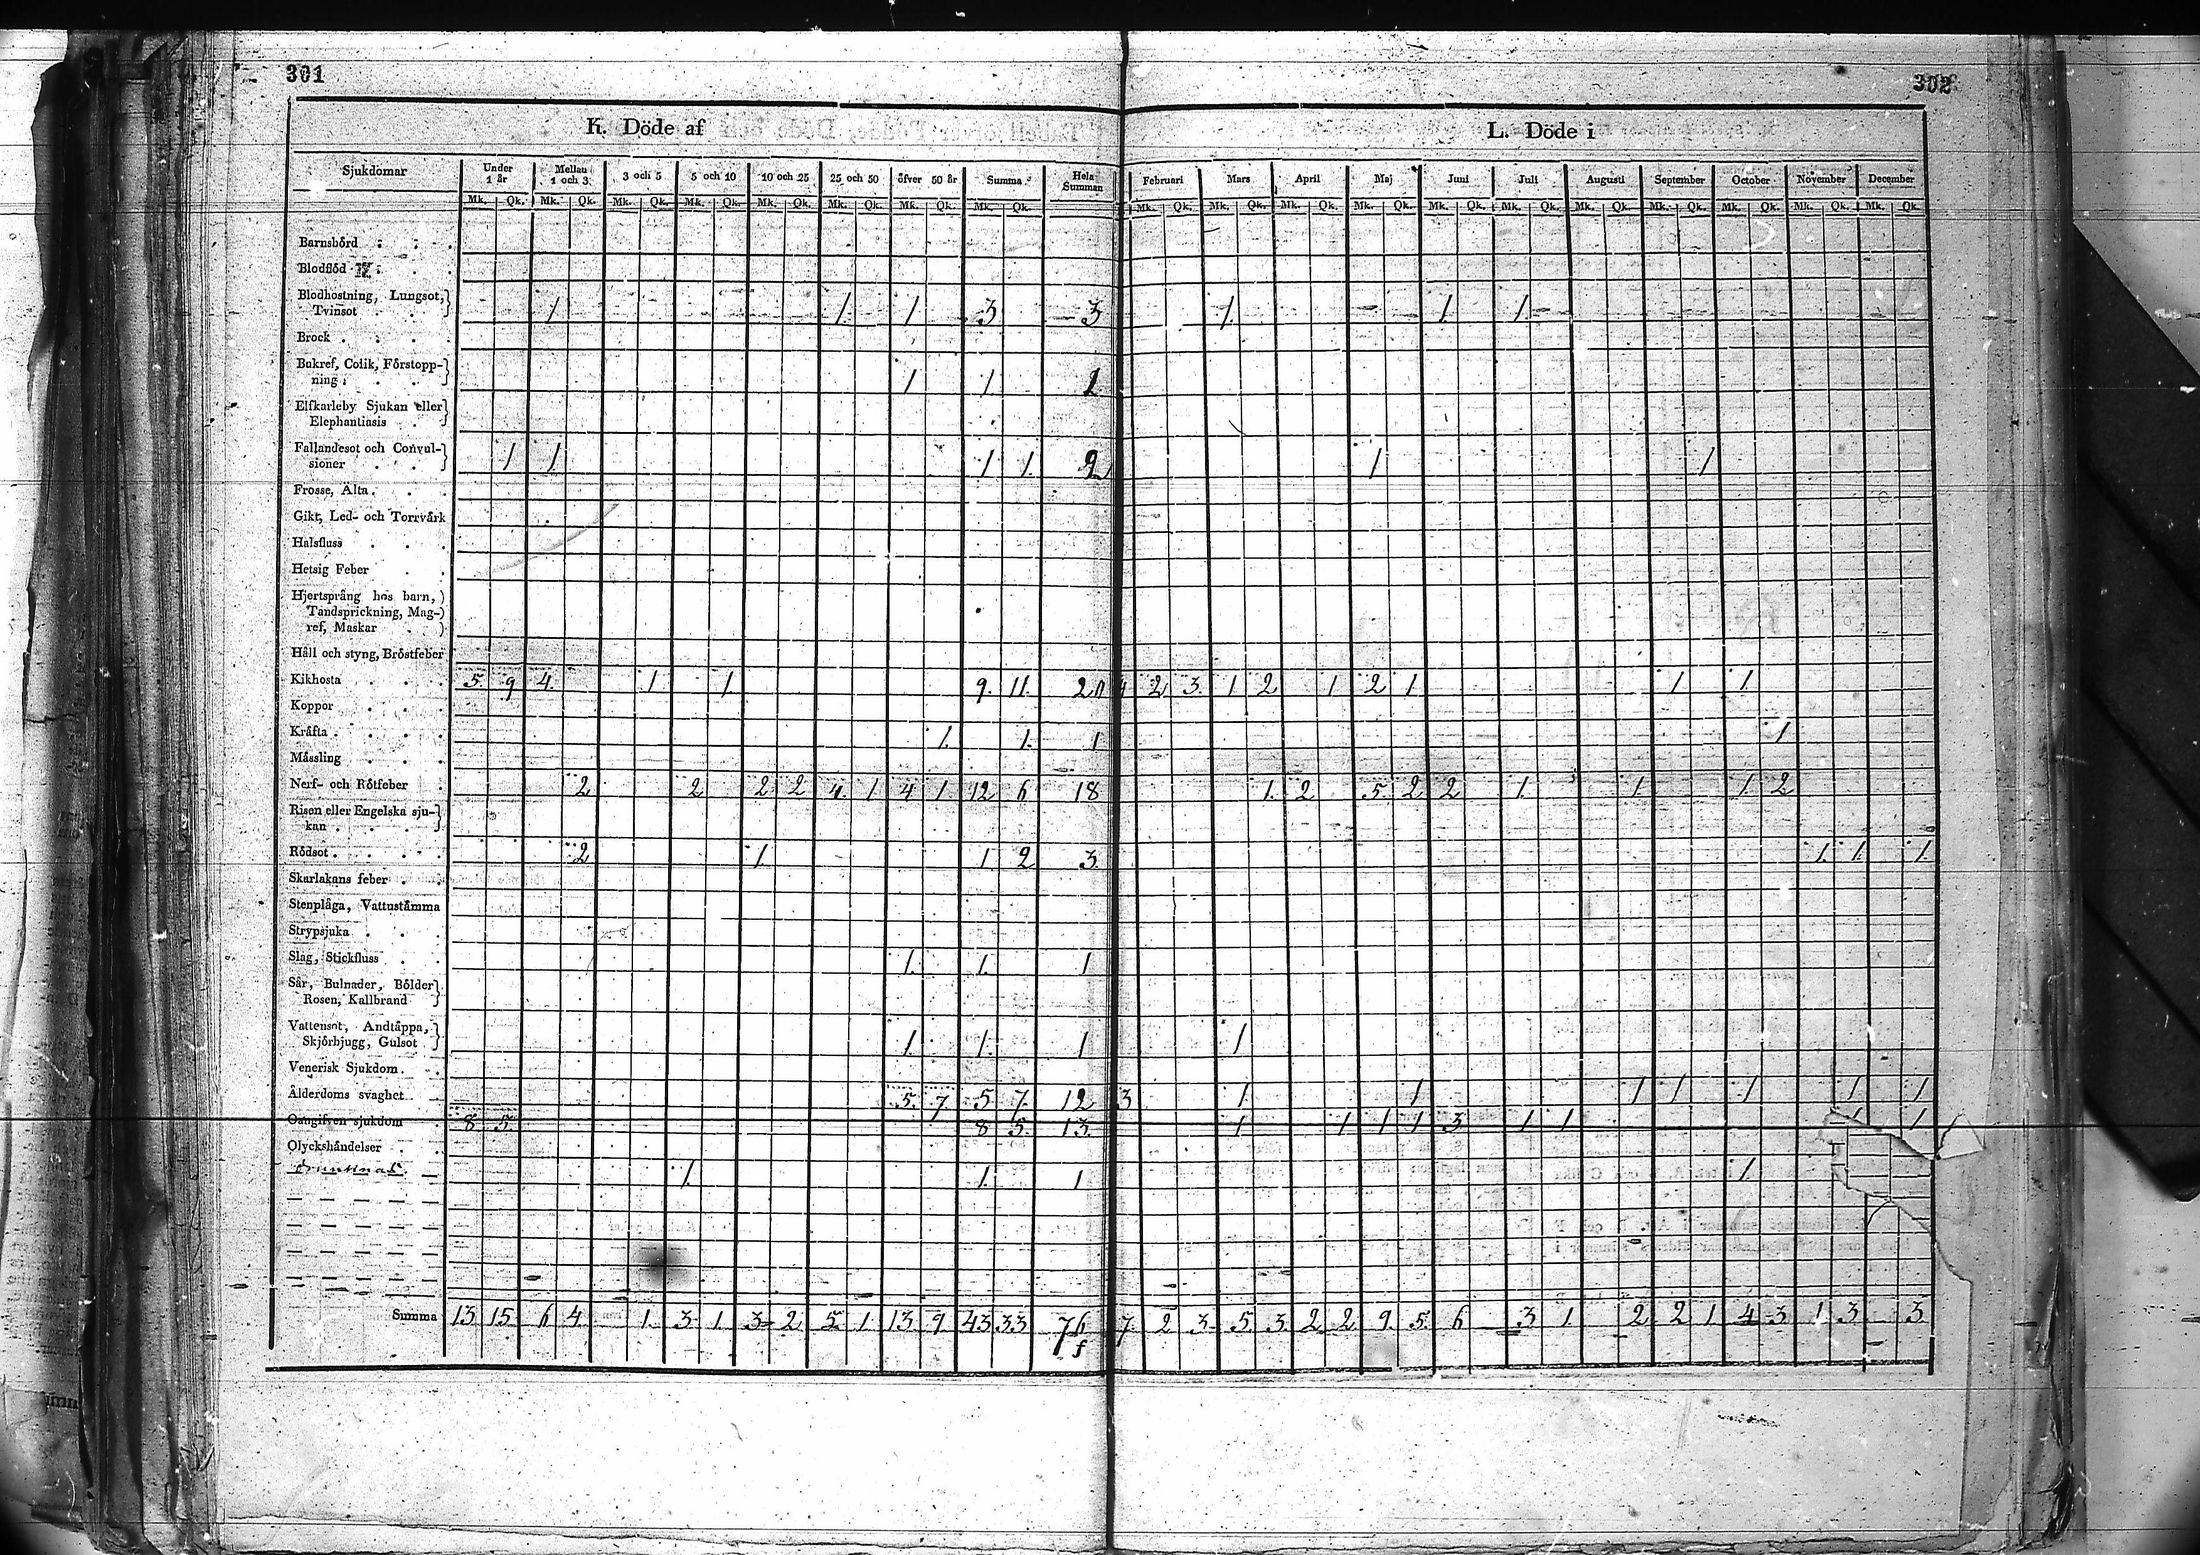 301
302
K. Döde af
L. Döde i
Sjukdomar Under 1 år Mellan 1 och 3 3 och 5 5 och 10 10 och 25 25 och 50 öfver 50 år Summa Hela Summan Februari Mars April Maj Juni Juli Augusti September October November December
Mk. Qk. Mk. Qk. Mk. Qk. Mk. Qk. Mk. Qk. Mk. Qk. Mk. Qk. Mk. Qk. Mk. Qk. Mk. Qk. Mk. Qk. Mk. Qk. Mk. Qk. Mk. Qk. Mk. Qk. Mk. Qk. Mk. Qk. Mk. Qk. Mk. Qk.
Barnsbörd
Blodflöd
Blodhostning, Lungsot,
Tvinsot 1 1. 1 3 3 1. 1 1.
Brock
Bukref, Colik, Förstopp-
ning 1 1
Elfkarleby Sjukan eller
Elephantiasis
Fallandesot och Convul-
sioner 1 1 1 1. 2 1 1
Frosse, Älta
Gikt, Led- och Torrvärk
Halsfluss
Hetsig Feber
Hjertsprång hos barn,
Tandsprickning, Mag-
ref, Maskar
Håll och styng, Bröstfeber
Kikhosta 5. 9 4. 1 1. 9. 11. 20 4 2 3. 1 2 1 2 1 1 1.
Koppor
Kräfta 1. 1. 1 1
Mässling
Nerf- och Rötfeber 2 2 2 2 4. 1 4 1 12 6 18 1. 2 5. 2 2 1. 1. 1 2
Risen eller Engelska sju-
kan
Rödsot 2 1 1 2 3. 1. 1. 1.
Skarlakans feber
Stenplåga, Vattustämma
Strypsjuka
Slag, Stickfluss 1. 1. 1
Sår, Bulnader, Bölder
Rosen, Kallbrand
Vattensot, Andtäppa,
Skjörbjugg, Gulsot 1. 1. 1 1
Venerisk Sjukdom
Ålderdoms svaghet 5. 7. 5 7. 12 3 1 1 1 1 1 1 1
Oangifven sjukdom 8 5 8 5. 13. 1 1 1 1 3 1 1 1 1
Olyckshändelser
1. 1. 1 1
Summa 13 15 6 4 1 3 1 3 2 5 1 13 9 43 33 76 7 2 3 5 3 2 2 9 5 6 3 1 2 2 1 4 3 1 3 3